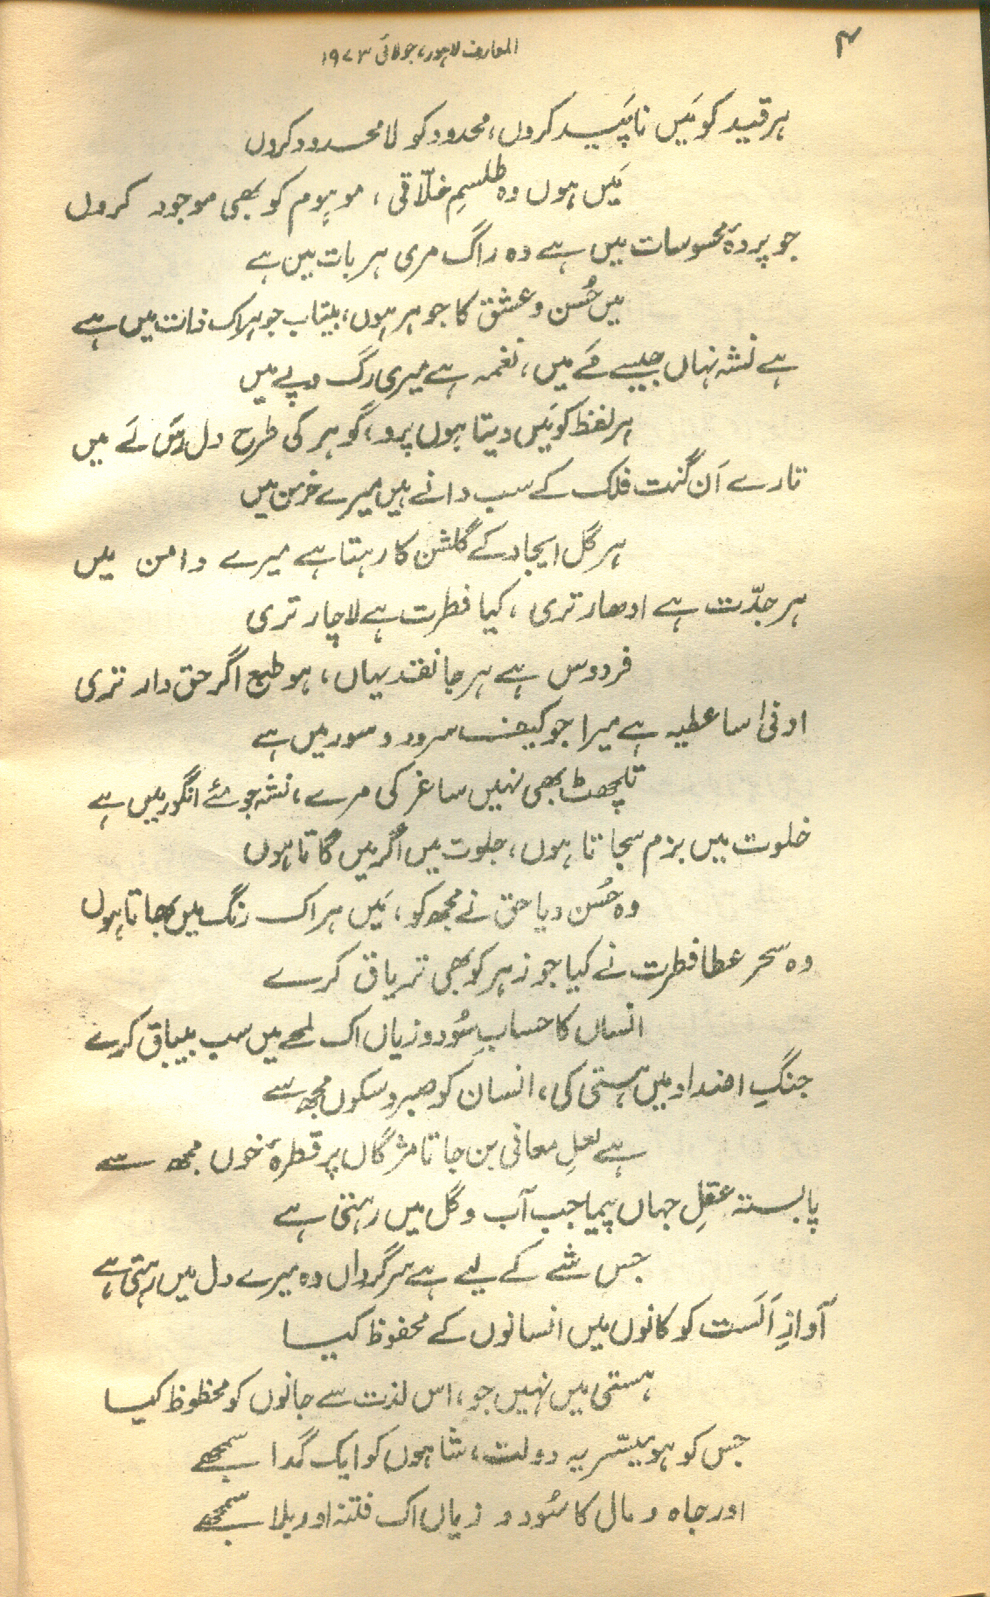 ۴
المعارف لاہور، جولائی ۱۹۷۳
ہر قید کو مَیں ناپَید کروں، محدود کو لا محدود کروں
مَیں ہوں وہ طلسمِ خلّاقی، موہوم کو بھی موجود کروں
جو پردۂ محسوسات میں ہے وہ راگ مری ہر بات میں ہے
میں حُسن و عشق کا جوہر ہوں، بیتاب جو ہر اک ذات میں ہے
ہے نشہ نہاں جیسے مَے میں، نغمہ ہے میری رگ و پے میں
ہر لفظ کو مَیں دیتا ہوں پرو، گوہر کی طرح دل رس لَے میں
تارے اَن گنت فلک کے سب دانے ہیں میرے خرمن میں
ہر گل ایجاد کے گلشن کا رہتا ہے میرے دامن میں
ہر جدّت ہے ادھار تری، کیا فطرت ہے لاچار تری
فردوس ہے ہر جا نقد یہاں، ہو طبع اگر حق دار تری
ادنیٰ سا عطیہ ہے میرا جو کیف سرور و سور میں ہے
تلچھٹ بھی نہیں ساغر کی مرے، نشہ جو مئے انگور میں ہے
خلوت میں بزم سجاتا ہوں، جلوت میں اگر میں گاتا ہوں
وہ حُسن دیا حق نے مجھ کو، مَیں ہر اک رنگ میں بھاتا ہوں
وہ سحر عطا فطرت نے کیا جو زہر کو بھی تریاق کرے
انساں کا حسابِ سُود و زیاں اک لمحے میں سب بیباق کرے
جنگِ اضداد میں ہستی کی، انسان کو صبر و سکوں مجھ سے
ہے لعلِ معانی بن جاتا مژگاں پر قطرۂ خوں مجھ سے
پابستہ عقلِ جہاں پیما جب آب و گل میں رہتی ہے
جس شے کے لیے ہے سرگرداں وہ میرے دل میں رہتی ہے
آوازِ اَلَست کو کانوں میں انسانوں کے محفوظ کیا
ہستی میں نہیں جو، اس لذت سے جانوں کو محظوظ کیا
جس کو ہو میسّر یہ دولت، شاہوں کو ایک گدا سمجھے
اور جاہ و مال کا سُود و زیاں اک فتنہ اور بلا سمجھے